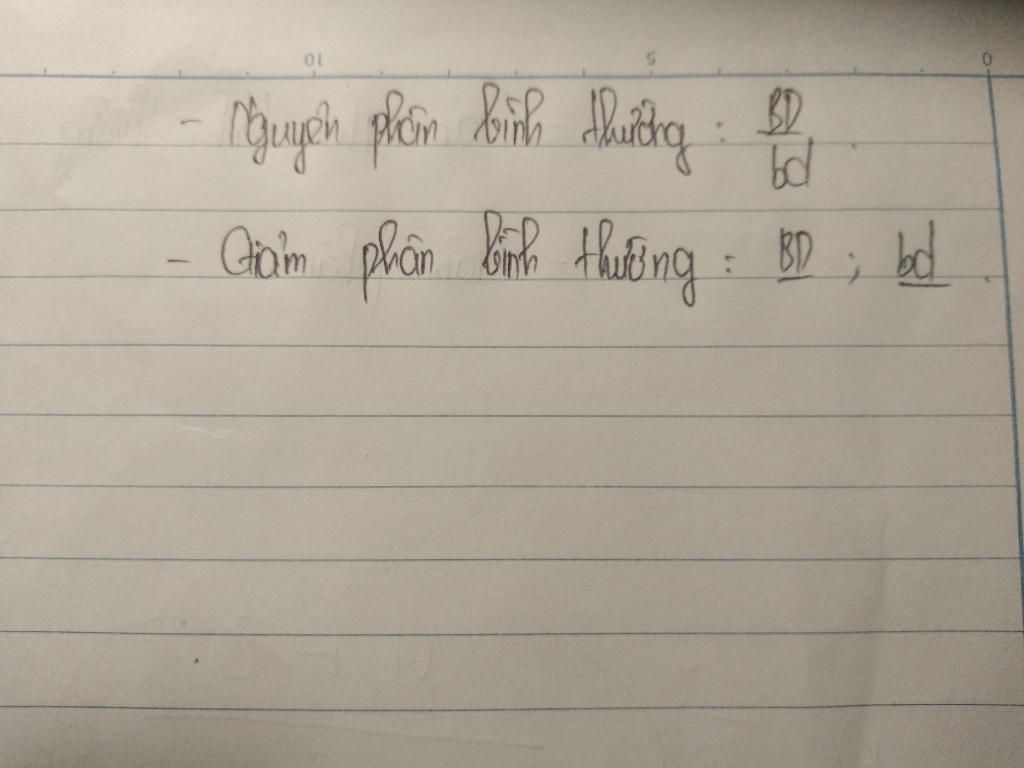 10 5 0
- Nguyên phân bình thường : BD
bd .
- Giảm phân bình thường : BD ; bd .